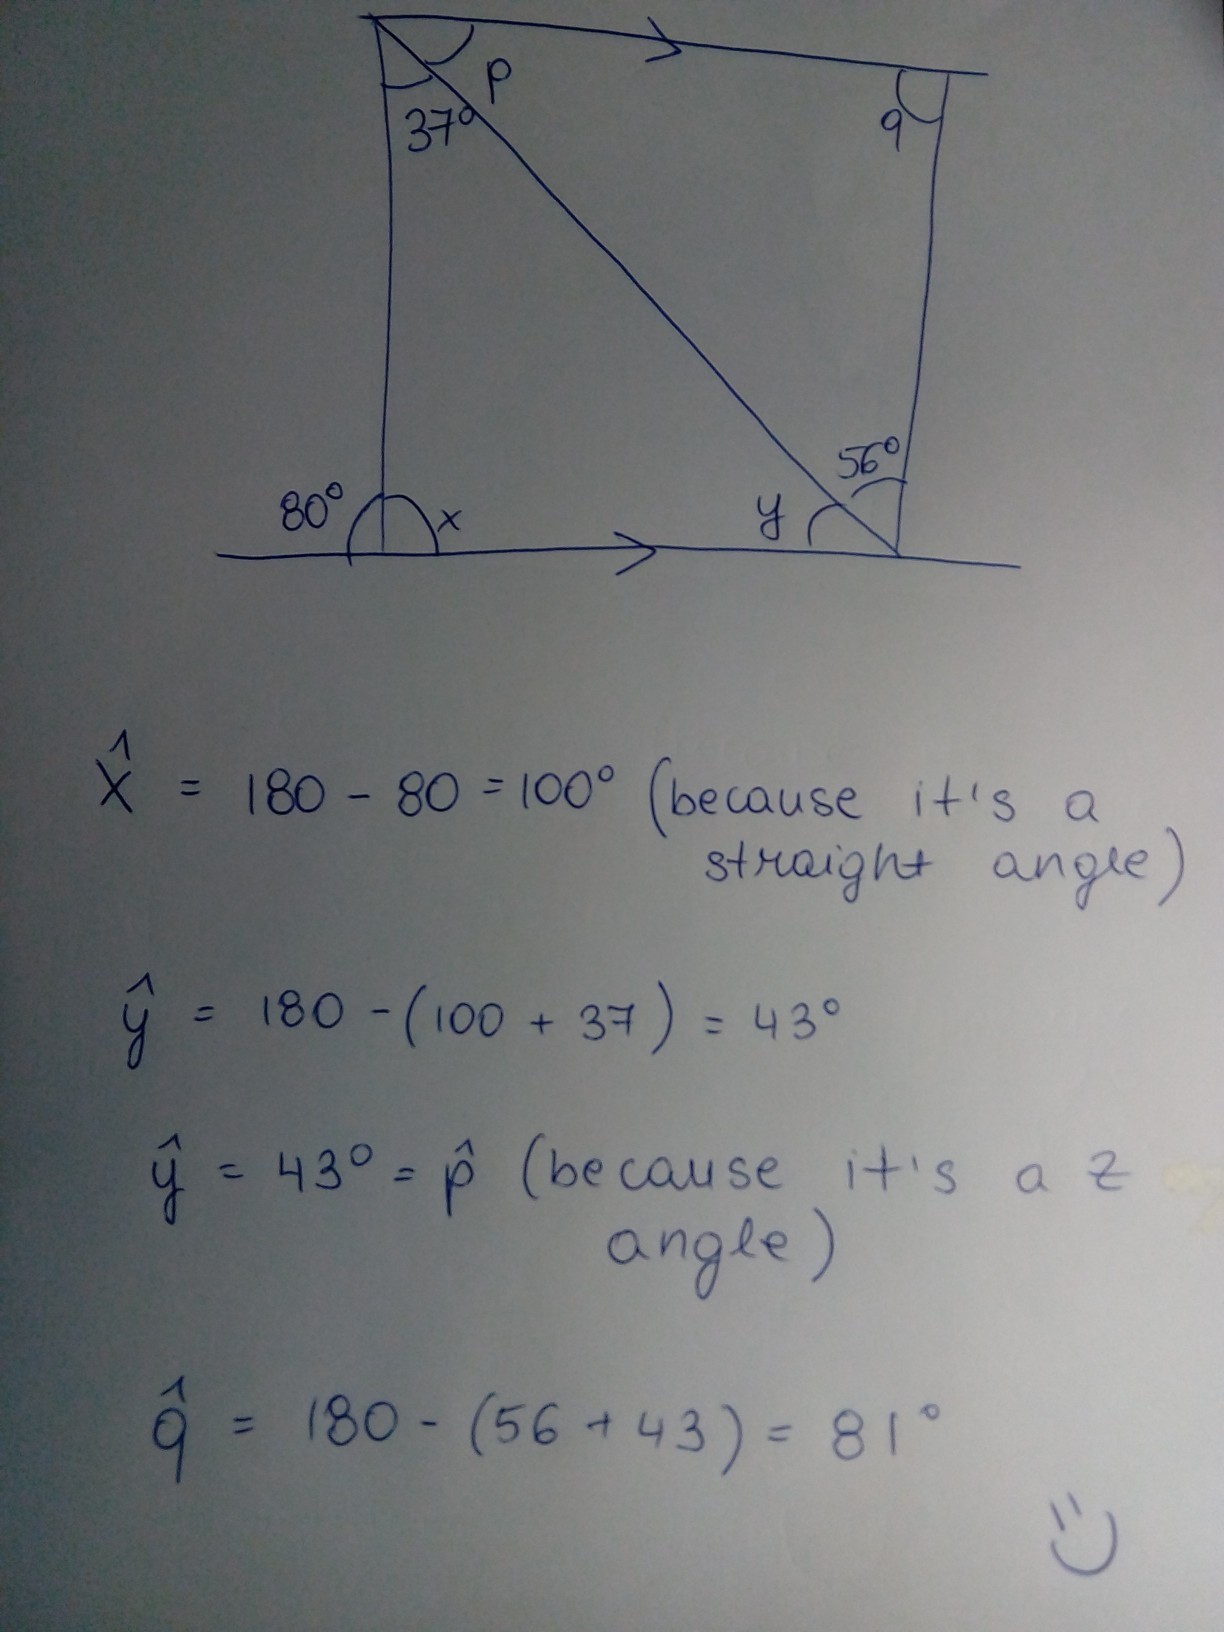 p
37°
q
56°
80°
x
y
x̂ = 180 - 80 = 100° (because it's a
straight angle)
ŷ = 180 - (100 + 37) = 43°
ŷ = 43° = p̂ (because it's a z
angle)
q̂ = 180 - (56 + 43) = 81°